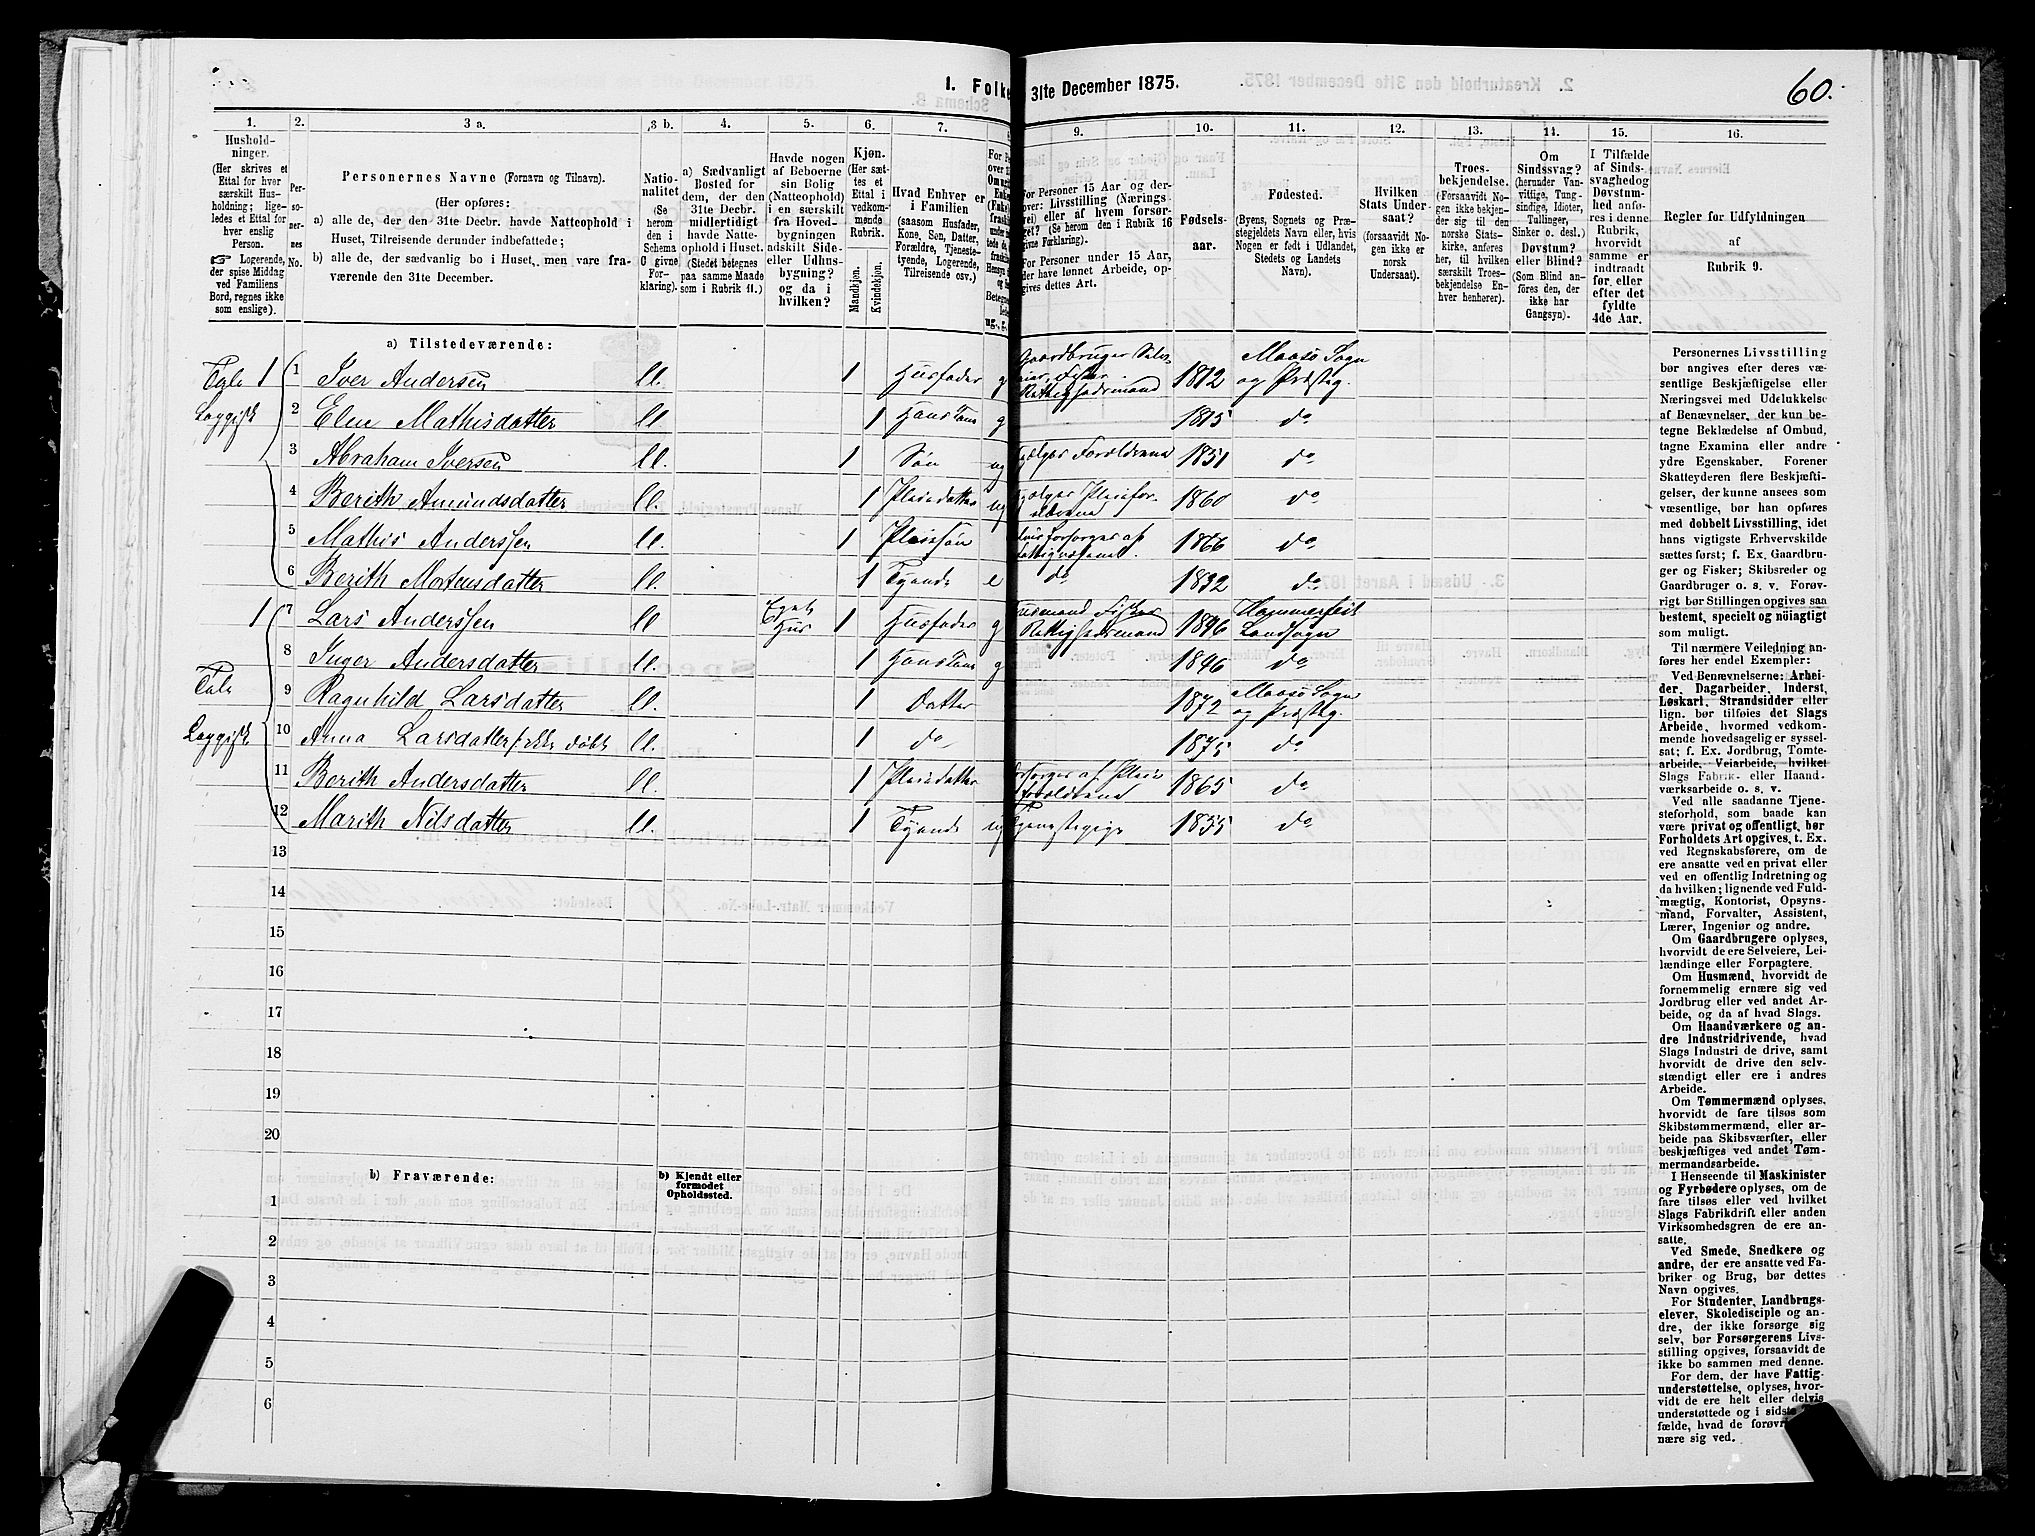 1. Folke 31te December 1875.
60.
1. 2. 3 a. 3 b. 4. 5. 6. 7. 9. 10. 11. 12. 13. 14. 15. 16.
Hushold-
ninger.
(Her skrives et
Ettal for hver
særskilt Hus-
holdning; lige-
ledes et Ettal for
hver enslig
Person.
☞ Logerende,
der spise Middag
ved Familiens
Bord, regnes ikke
som enslige).
Per-
so-
ner-
nes
No.
Personernes Navne (Fornavn og Tilnavn).
(Her opføres:
a) alle de, der den 31te Decbr. havde Natteophold i
Huset, Tilreisende derunder indbefattede;
b) alle de, der sædvanlig bo i Huset, men vare fra-
værende den 31te December.
Natio-
nalitet
(Se
herom
den i
Schema
C givne
For-
klaring).
a) Sædvanligt
Bosted for
dem, der den
31te Decbr.
midlertidigt
havde Natte-
ophold i Huset.
(Stedet betegnes
paa samme Maade
som i Rubrik 11.)
Havde nogen
af Beboerne
sin Bolig
(Natteophold)
i en særskilt
fra Hoved-
bygningen
adskilt Side-
eller Udhus-
bygning?
og da i
hvilken?
Kjøn.
(Her sæt-
tes et
Ettal i
vedkom-
mende
Rubrik.
Mandkjøn.
Kvindekjøn.
Hvad Enhver er
i Familien
(saasom Husfader,
Kone, Søn, Datter,
Forældre, Tjeneste-
tyende, Logerende,
Tilreisende osv.)
For Personer 15 Aar og der-
over: Livsstilling (Nærings-
vei) eller af hvem forsør-
get? (Se herom den i Rubrik 16
givne Forklaring).
For Personer under 15 Aar,
der have lønnet Arbeide, op-
gives dettes Art.
Fødsels-
aar.
Fødested.
(Byens, Sognets og Præ-
stegjeldets Navn eller, hvis
Nogen er født i Udlandet,
Stedets og Landets
Navn).
Hvilken
Stats Under-
saat?
(forsaavidt No-
gen ikke er
norsk
Undersaat).
Troes-
bekjendelse.
(Forsaavidt No-
gen ikke bekjen-
der sig til den
norske Stats-
kirke, anføres
her, til hvilken
særskilt Troes-
bekjendelse En-
hver henhører).
Om
Sindssvag?
(herunder Van-
vittige, Tung-
sindige, Idioter,
Tullinger,
Sinker o. desl.)
Døvstum?
eller Blind?
(Som Blind an-
føres den, der
ikke har
Gangsyn).
I Tilfælde
af Sinds-
svaghedog
Døvstum-
hed anfø-
res i denne
Rubrik,
hvorvidt
samme er
indtraadt
før eller
efter det
fyldte
4de Aar.
Regler for Udfyldningen
af
Rubrik 9.
a) Tilstedeværende:
1 1 Iver Andersen ll. 1 Husfader g Gaardbruger Selv-
eier, Fisker
Rettighedsmand 1812 Maasø Sogn
og Præsteg.
2 Elen Mathisdatter ll 1 g 1815 do
3 Abraham Iversen ll. 1 Søn ug Forældrene 1851 do
4 Berith Amundsdatter ll. 1 Pleiedatter ug 1860 do
5 Mathis Anderssen ll. 1 Pleiesøn forsørges af 1866 do
6 Berith Mortensdatter ll. 1 Tyende e do 1832 do
1 7 Lars Anderssen ll Eget
Hus 1 Husfader g Husmand Fisker
Rettighedsmand 1846 Hammerfest
Landsogn
8 Inger Andersdatter ll. 1 g 1846 do
9 Ragnhild Larsdatter ll. 1 Datter 1872 Maasø Sogn
og Præsteg.
10 Anna Larsdatter ikke døbt ll. 1 do 1875 do
11 Berith Andersdatter ll. 1 Pleiedatter forsørges af Pleie
forældrene 1865 do
12 Marith Nilsdatter ll. 1 Tyende ug Tjenestepige 1855 do
13
14
15
16
17
18
19
20
b) Fraværende:
b) Kjendt eller
formodet
Opholdssted.
1
2
3
4
5
6
Personernes Livsstilling
bør angives efter deres væ-
sentlige Beskjæftigelse eller
Næringsvei med Udelukkelse
af Benævnelser, der kun be-
tegne Beklædelse af Ombud,
tagne Examina eller andre
ydre Egenskaber. Forener
Skatteyderen flere Beskjæfti-
gelser, der kunne ansees som
væsentlige, bør han opføres
med dobbelt Livsstilling, idet
hans vigtigste Erhvervskilde
sættes først; f. Ex. Gaardbru-
ger og Fisker; Skibsreder og
Gaardbruger o. s. v. Forøv-
rigt bør Stillingen opgives saa
bestemt, specielt og nöiagtigt
som muligt.
Til nærmere Veiledning an-
føres her endel Exempler:
Ved Benævnelserne: Arbei-
der, Dagarbeider, Inderst,
Løskarl, Strandsidder eller
lign. bør tilføies det Slags
Arbeide, hvormed vedkom-
mende hovedsagelig er syssel-
sat; f. Ex. Jordbrug, Tomte-
arbeide, Veiarbeide, hvilket
Slags Fabrik- eller Haand-
værksarbeide o. s. v.
Ved alle saadanne Tjene-
steforhold, som baade kan
være privat og offentligt, bør
Forholdets Art opgives, t. Ex.
ved Regnskabsførere, om de
ere ansatte ved en privat eller
ved en offentlig Indretning og
da hvilken; lignende ved Fuld-
mægtig, Kontorist, Opsyns-
mand, Forvalter, Assistent,
Lærer, Ingeniør og andre.
Om Gaardbrugere oplyses,
hvorvidt de ere Selveiere, Lei-
lændinge eller Forpagtere.
Om Husmænd, hvorvidt de
fornemmelig ernære sig ved
Jordbrug eller ved andet Ar-
beide, og da af hvad Slags.
Om Haandværkere og an-
dre Industridrivende, hvad
Slags Industri de drive, samt
hvorvidt de drive den selv-
stændigt eller ere i andres
Arbeide.
Om Tømmermænd oplyses,
hvorvidt de fare tilsøs som
Skibstømmermænd, eller ar-
beide paa Skibsværfter, eller
beskjæftiges ved andet Tøm-
mermandsarbeide.
I Henseende til Maskinister
og Fyrbødere oplyses, om de
fare tilsøs eller ved hvilket
Slags Fabrikdrift eller anden
Virksomhedsgren de ere an-
satte.
Ved Smede, Snedkere og
andre, der ere ansatte ved Fa-
briker og Brug, bør dettes
Navn opgives.
For Studenter, Landbrugs-
elever, Skoledisciple og an-
dre, der ikke forsørge sig
selv, bør Forsørgerens Livs-
stilling opgives, forsaavidt de
ikke bo sammen med denne.
For dem, der have Fattig-
understøttelse, oplyses, hvor-
vidt de ere helt eller delvis
understøttede og i sidste
fælde, hvad de forøv
nære sig ved.